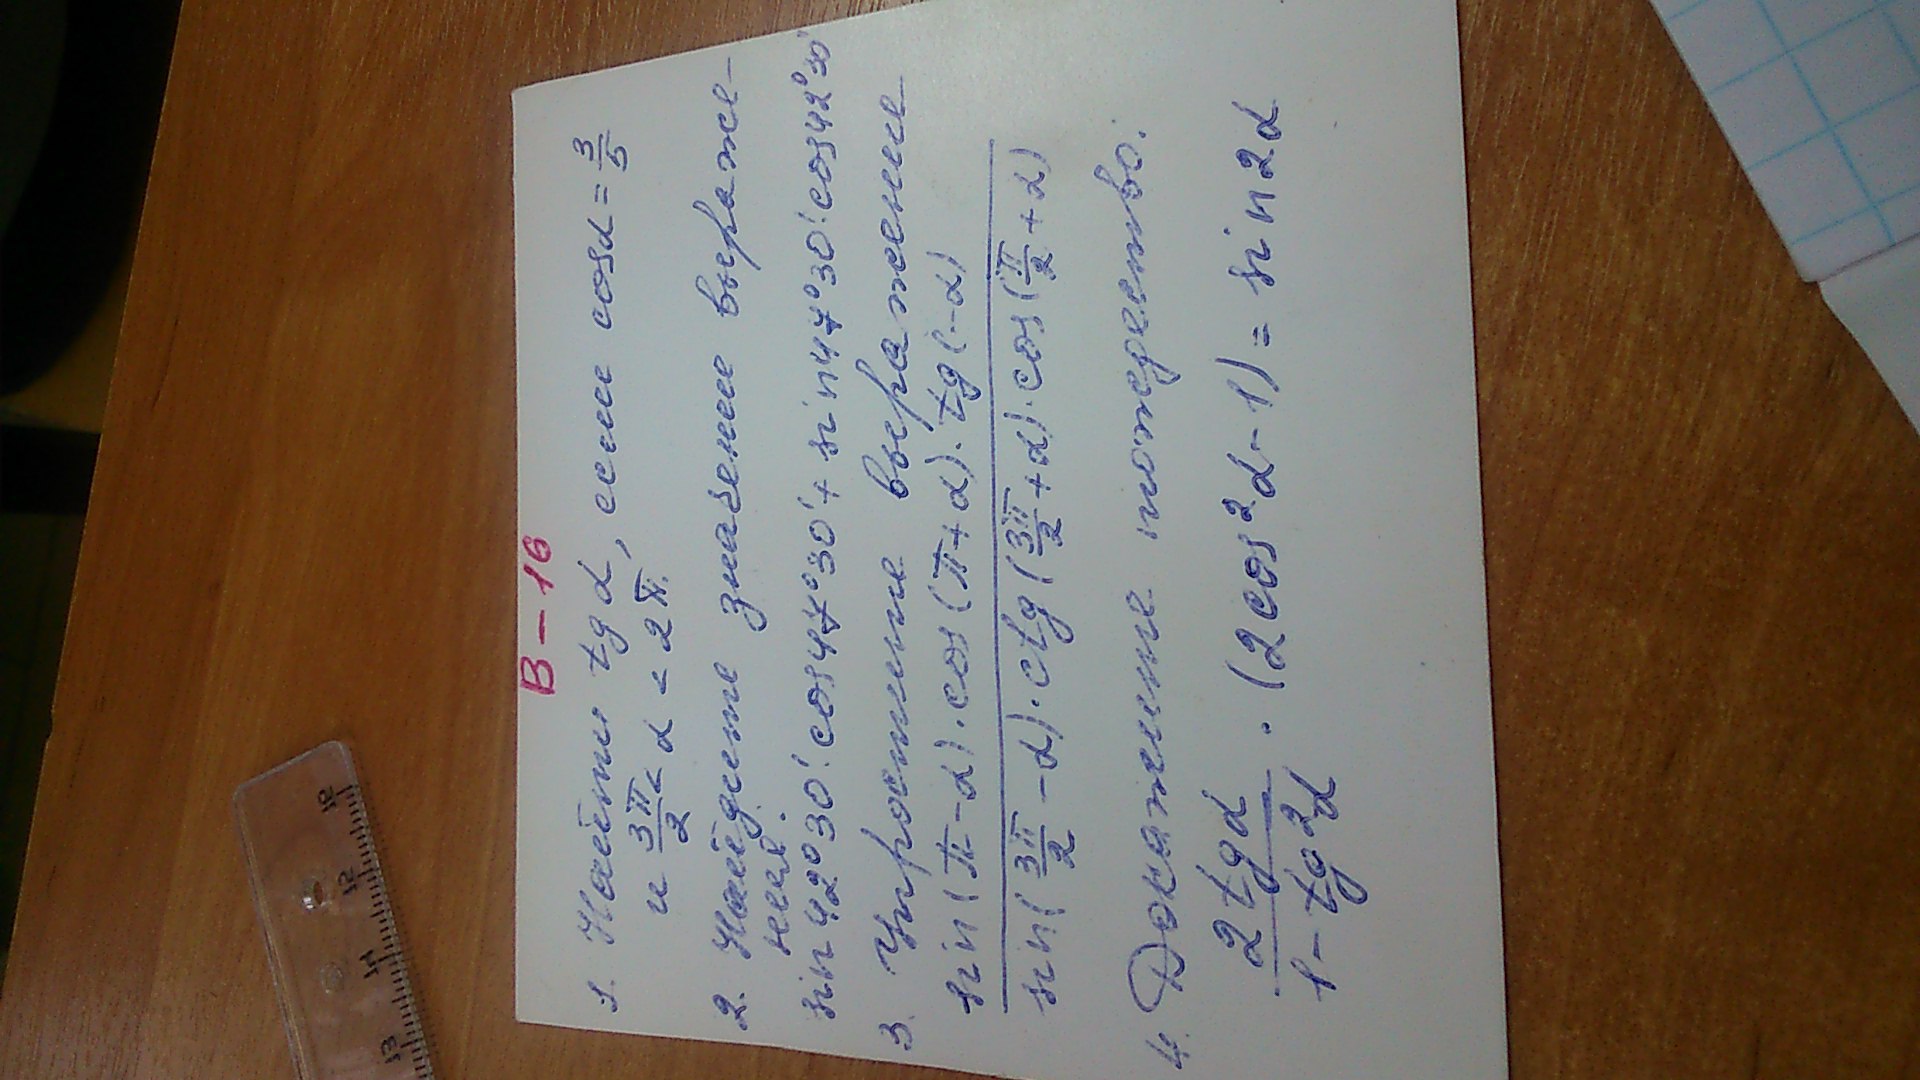 В-16
1. Найти tg α, если cos α = 3/5
и 3π/2 < α < 2π.
2. Найдите значение выраже-
ния.
sin 42°30'·cos 47°30' + sin 47°30'·cos 42°30'
3. Упростите выражение
sin(π-α)·cos(π+α)·tg(-α)
sin(3π/2 -α)·ctg(3π/2 +α)·cos(π/2 +α)
4. Докажите тождество.
2 tg α / 1 - tg²α · (2cos²α - 1) = sin 2α
13 14 12 18